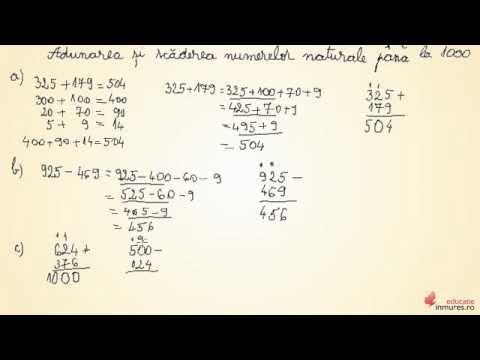 Adunarea și scăderea numerelor naturale până la 1000
a) 325 + 179 = 504
300 + 100 = 400
20 + 70 = 90
5 + 9 = 14
400 + 90 + 14 = 504
325 + 179 = 325 + 100 + 70 + 9
= 425 + 70 + 9
= 495 + 9
= 504
325 +
179
504
b) 925 - 469 = 925 - 400 - 60 - 9
= 525 - 60 - 9
= 465 - 9
= 456
925 -
469
456
c) 624 +
376
1000
500 -
124
educatie
inmures.ro